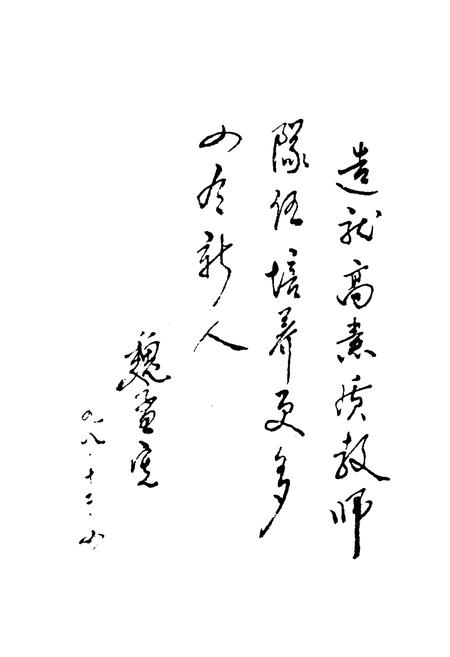 造就高素质教师
隊伍培养更多
四有新人
魏
九八·十二·